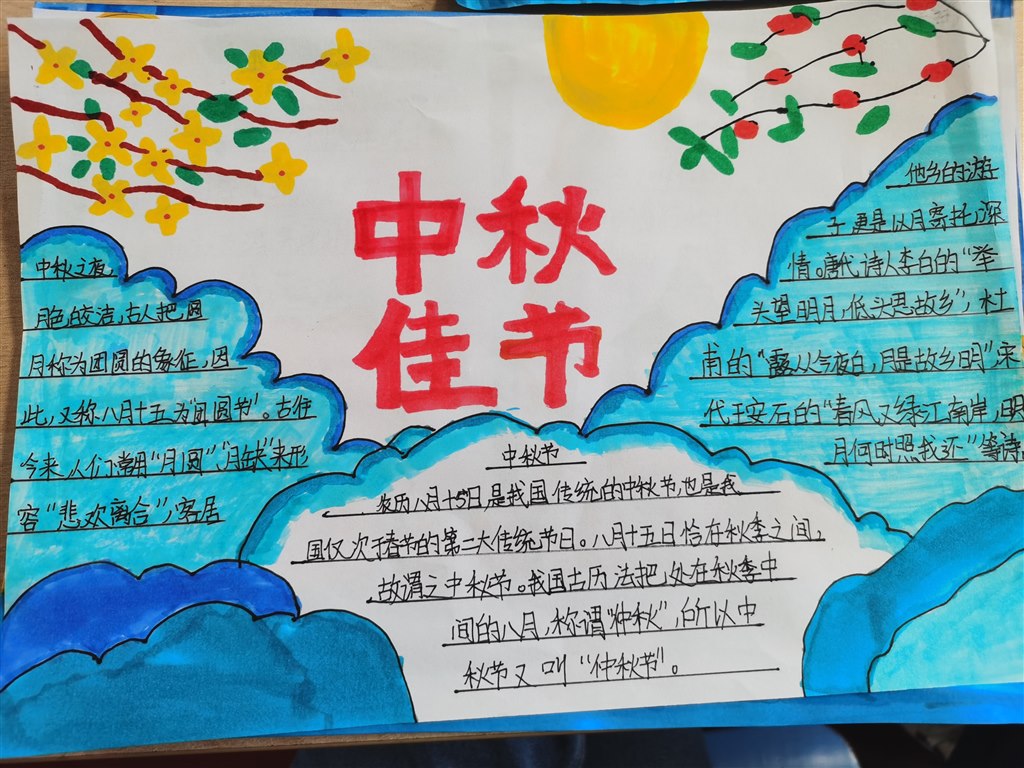 中秋
佳节
中秋之夜,
月色皎洁,古人把圆
月称为团圆的象征,因
此,又称八月十五为"团圆节"。古往
今来,人们常用"月圆","月缺"来形
容"悲欢离合",客居
他乡的游
子,更是以月寄托深
情。唐代诗人李白的"举
头望明月,低头思故乡",杜
甫的"露从今夜白,月是故乡明"宋
代王安石的"春风又绿江南岸,明
月何时照我还"等诗
中秋节
农历八月十5日是我国传统的中秋节,也是我
国仅次于春节的第二大传统节日。八月十五日恰在秋季之间,
故谓之中秋节。我国古历法把,处在秋季中
间的八月,称谓"仲秋",所以中
秋节又叫"仲秋节"。